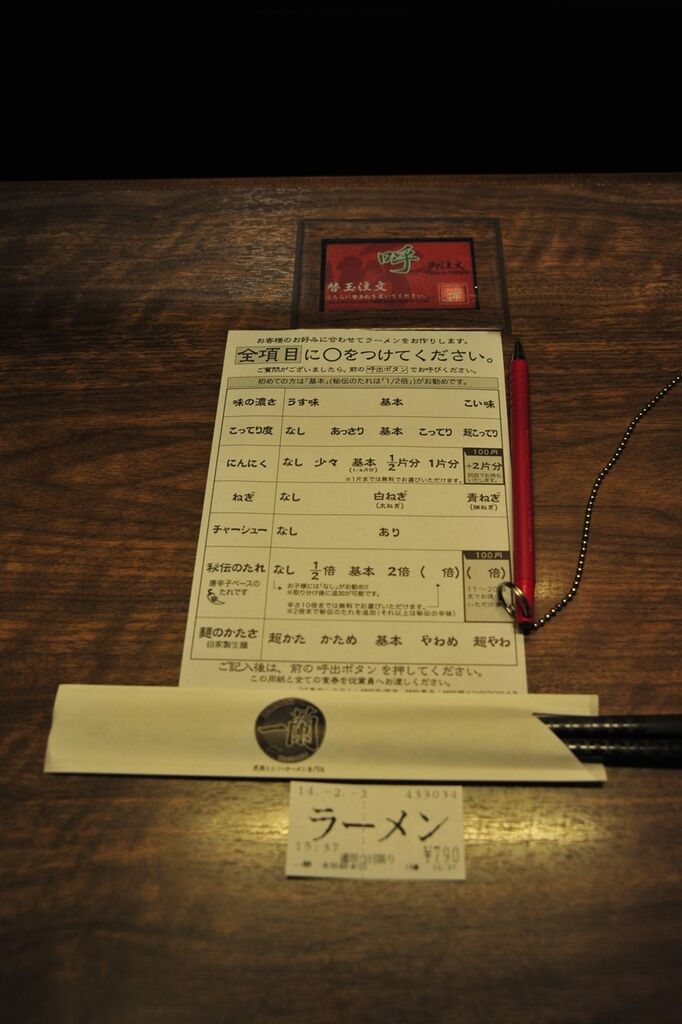 呼
御注文
替玉注文
こちらに替玉札を置いてください。
お客様のお好みに合わせてラーメンをお作りします。
全項目に○をつけてください。
ご質問がございましたら、前の呼出ボタンでお呼びください。
初めての方は「基本」(秘伝のたれは「1/2倍」)がお勧めです。
味の濃さ うす味 基本 こい味
こってり度 なし あっさり 基本 こってり 超こってり
100円
にんにく なし 少々 基本 1/2片分 1片分 +2片分
(1/4片分) 別皿でお持ちいたします。
※1片までは無料でお選びいただけます。
ねぎ なし 白ねぎ 青ねぎ
(太ねぎ) (細ねぎ)
チャーシュー なし あり
100円
秘伝のたれ なし 1/2倍 基本 2倍 ( 倍) ( 倍)
唐辛子ベースのたれです
お子様には「なし」がお勧め!!
※取り分け後に追加が可能です。
辛さ10倍までは無料でお選びいただけます。
※2倍まで秘伝のたれを追加(それ以上は秘伝の辛味)
11～20
麺のかたさ 超かた かため 基本 やわめ 超やわ
自家製生麺
ご記入後は、前の呼出ボタンを押してください。
この用紙と全ての食券を従業員へお渡しください。
一蘭
14.-2.-2 433034
ラーメン
15:37 ¥790